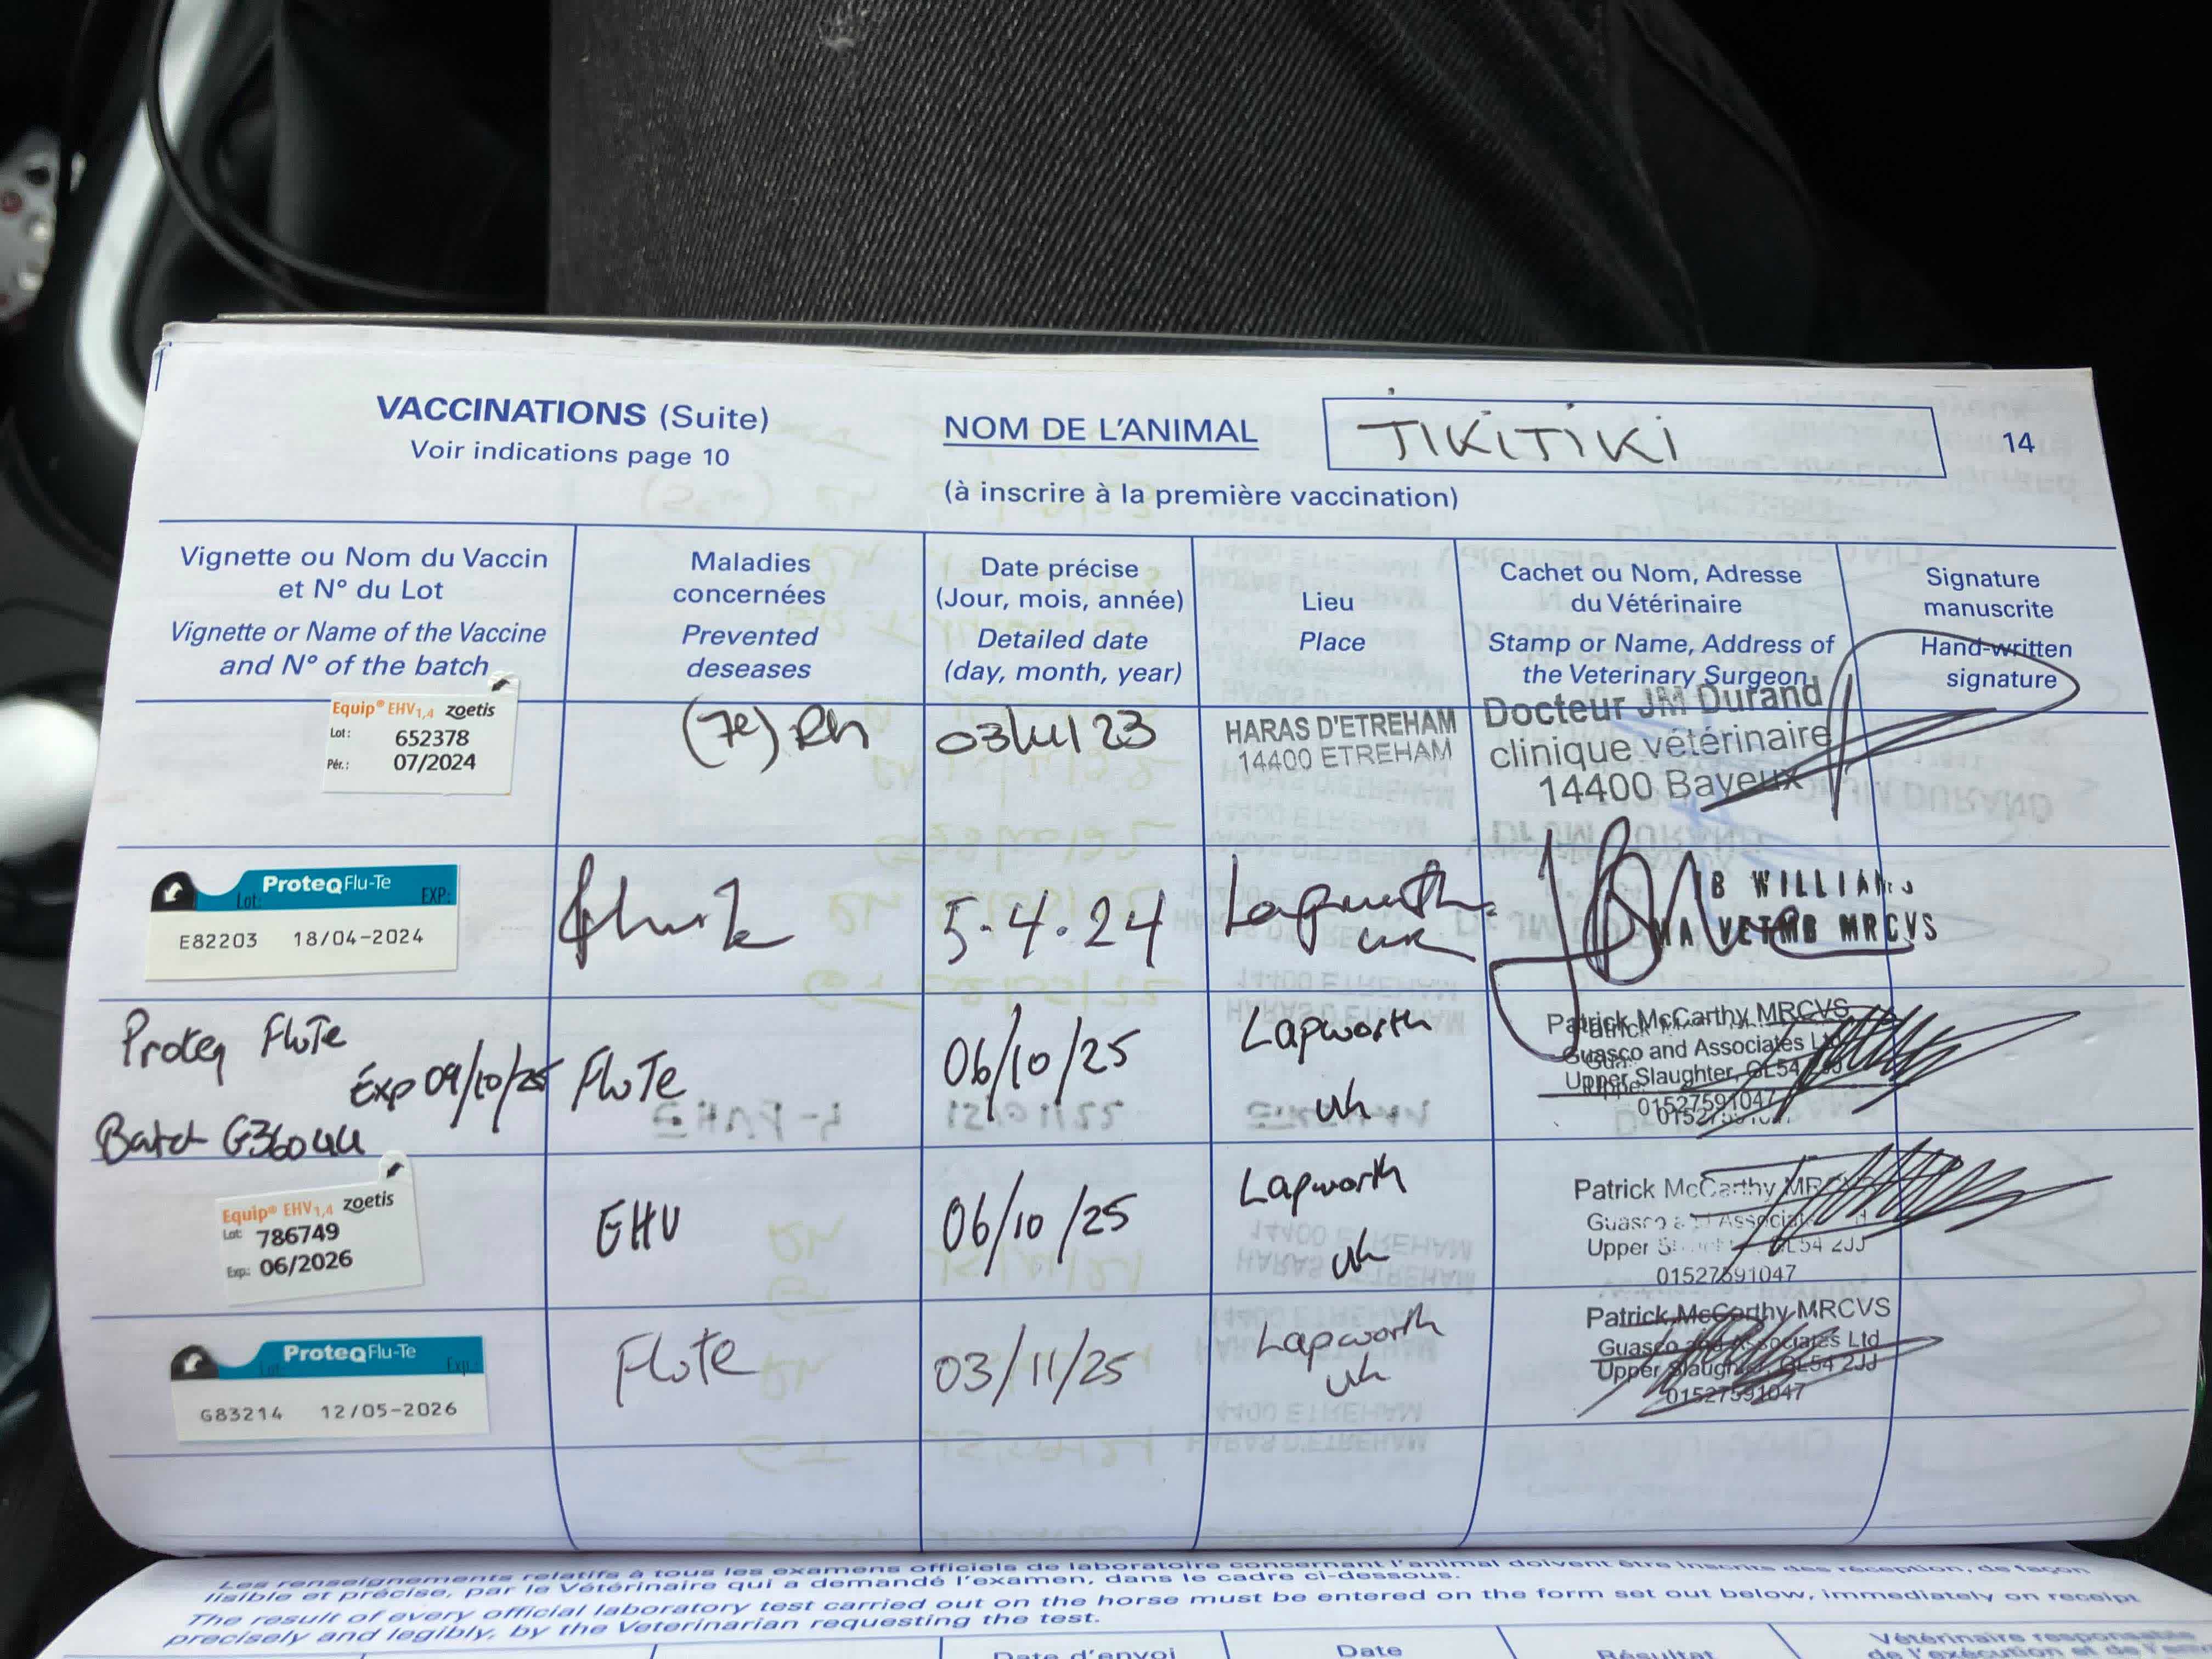 VACCINATIONS (Suite)
Voir indications page 10
NOM DE L'ANIMAL
TIKITIKI
14
(à inscrire à la première vaccination)
Vignette ou Nom du Vaccin
et N° du Lot
Vignette or Name of the Vaccine
and N° of the batch
Maladies
concernées
Prevented
deseases
Date précise
(Jour, mois, année)
Detailed date
(day, month, year)
Lieu
Place
Cachet ou Nom, Adresse
du Vétérinaire
Stamp or Name, Address of
the Veterinary Surgeon
Signature
manuscrite
Hand-written
signature
Equip® EHV1,4 zoetis
Lot: 652378
Pér.: 07/2024
(7e) Rh
HARAS D'ETREHAM
14400 ETREHAM
Docteur JM Durand
clinique vétérinaire
14400 Bayeux
ProteqFlu-Te
Lot: EXP:
E82203 18/04-2024
5.4.24
Lapworth
UK
B WILLIAMS
MA VETMB MRCVS
Proteq FluTe
Exp 09/10/25
Batch G36044
FluTe
06/10/25
Lapworth
Uk
Patrick McCarthy MRCVS
Guasco and Associates Ltd
Upper Slaughter, GL54 2JJ
01527591047
Equip® EHV1,4 zoetis
Lot: 786749
Exp.: 06/2026
EHV
06/10/25
Lapworth
Uk
Patrick McCarthy MRCVS
Guasco and Associates Ltd
Upper Slaughter, GL54 2JJ
01527591047
ProteqFlu-Te
Lot: Exp.:
G83214 12/05-2026
FluTe
03/11/25
Lapworth
Uk
Patrick McCarthy MRCVS
Guasco and Associates Ltd
Upper Slaughter, GL54 2JJ
01527591047
Les renseignements relatifs à tous les examens officiels de laboratoire concernant l'animal doivent être inscrits dès réception, de façon
lisible et précise, par le Vétérinaire qui a demandé l'examen, dans le cadre ci-dessous.
The result of every official laboratory test carried out on the horse must be entered on the form set out below, immediately on receipt
precisely and legibly, by the Veterinarian requesting the test.
Date d'envoi
Date
Résultat
Vétérinaire responsable